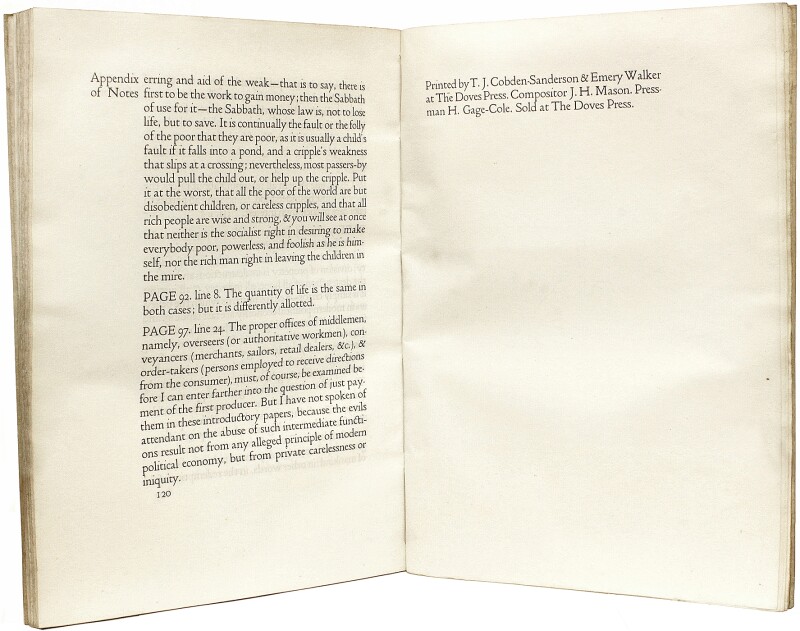 Appendix erring and aid of the weak—that is to say, there is
of Notes first to be the work to gain money; then the Sabbath
of use for it—the Sabbath, whose law is, not to lose
life, but to save. It is continually the fault or the folly
of the poor that they are poor, as it is usually a child's
fault if it falls into a pond, and a cripple's weakness
that slips at a crossing; nevertheless, most passers-by
would pull the child out, or help up the cripple. Put
it at the worst, that all the poor of the world are but
disobedient children, or careless cripples, and that all
rich people are wise and strong, & you will see at once
that neither is the socialist right in desiring to make
everybody poor, powerless, and foolish as he is him-
self, nor the rich man right in leaving the children in
the mire.
PAGE 92. line 8. The quantity of life is the same in
both cases; but it is differently allotted.
PAGE 97. line 24. The proper offices of middlemen,
namely, overseers (or authoritative workmen), con-
veyancers (merchants, sailors, retail dealers, &c.), &
order-takers (persons employed to receive directions
from the consumer), must, of course, be examined be-
fore I can enter farther into the question of just pay-
ment of the first producer. But I have not spoken of
them in these introductory papers, because the evils
attendant on the abuse of such intermediate functi-
ons result not from any alleged principle of modern
political economy, but from private carelessness or
iniquity.
120
Printed by T. J. Cobden-Sanderson & Emery Walker
at The Doves Press. Compositor J. H. Mason. Press-
man H. Gage-Cole. Sold at The Doves Press.